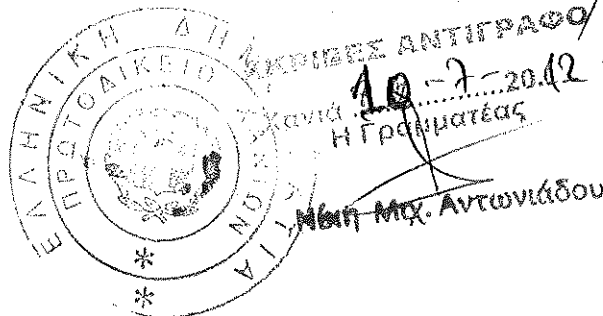 ΕΛΛΗΝΙΚΗ ΔΗ ΤΙΑ
ΠΡΩΤΟΔΙΚΕΙΟ ΝΙΩΝ
ΑΚΡΙΒΕΣ ΑΝΤΙΓΡΑΦΟ
Χανιά 10-7-2012
Η Γραμματέας
Μιχ. Αντωνιάδου